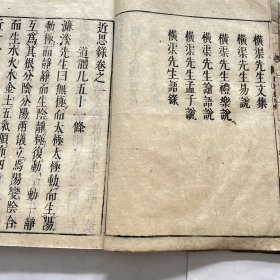 橫渠先生文集
橫渠先生易說
橫渠先生禮樂說
橫渠先生論語說
橫渠先生孟子說
橫渠先生語錄
近思錄卷之一
道體凡五十一條
濂溪先生曰無極而太極太極動而生陽
動極而靜靜而生陰靜極復動一動一靜
互為其根分陰分陽兩儀立焉陽變陰合
而生水火木金土五氣順布四